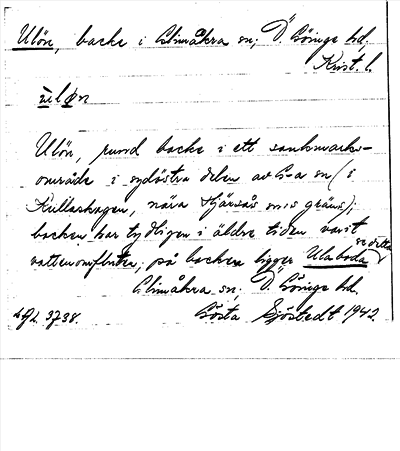 Ulön, backe i Glimåkra sn; Ö. Göinge hd,
Krist. l.
Ulön, rund backe i ett sankmarks-
område i sydöstra delen av G-a sn (i
Kullaskogen, nära Hjärsås sn:s gräns);
backen har tydligen i äldre tider varit
vattenomfluten; på backen ligger Ulaboda
se detta
Glimåkra sn; Ö. Göinge hd.
Gösta Sjöstedt 1942.
3738.